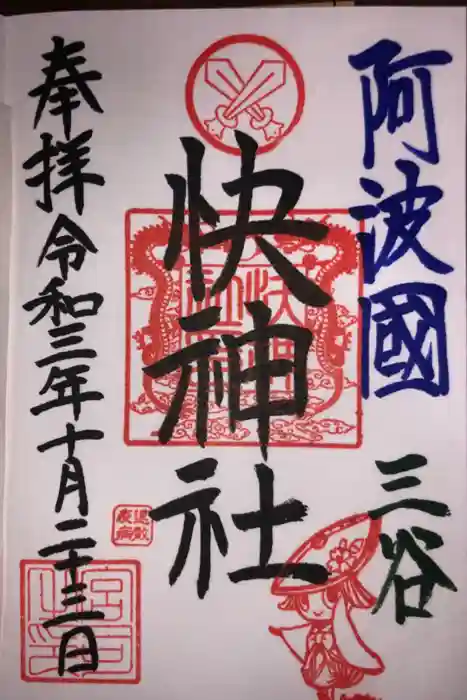 阿波國
三谷
快神社
奉拝令和三年十月二十三日